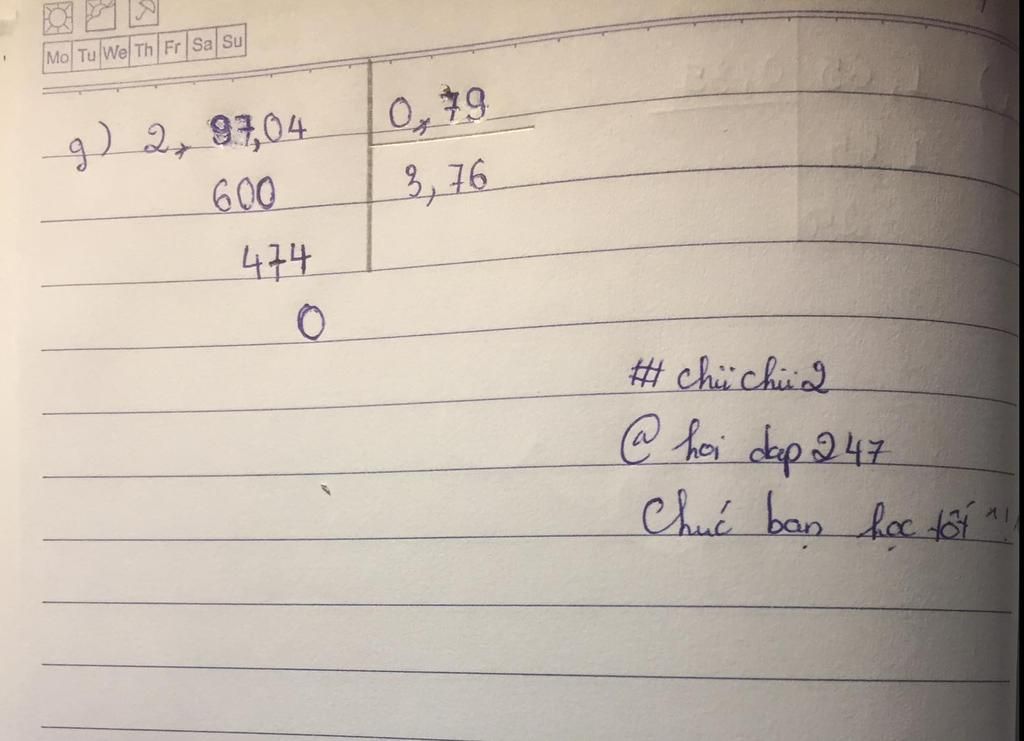 Mo Tu We Th Fr Sa Su
g) 2,97,04 0,79
600 3,76
474
0
# chiichii2
@ hoi dap 247
Chúc bạn học tốt ^^!!